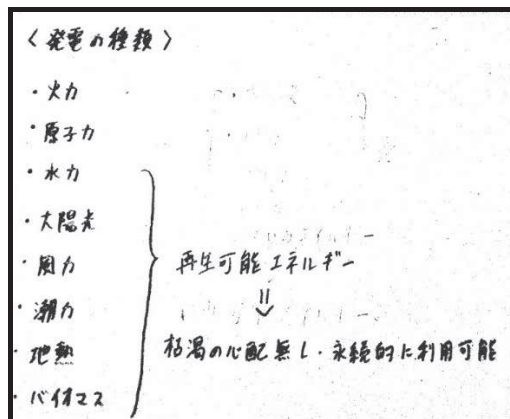 〈発電の種類〉
・火力
・原子力
・水力
・太陽光
・風力
・潮力
・地熱
・バイオマス
再生可能エネルギー
⇓
枯渇の心配無し・永続的に利用可能